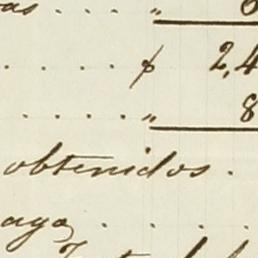 as . . . . "
. . . . . $ 2,4
. . . . . " 8
obtenidos .
aga . . . .